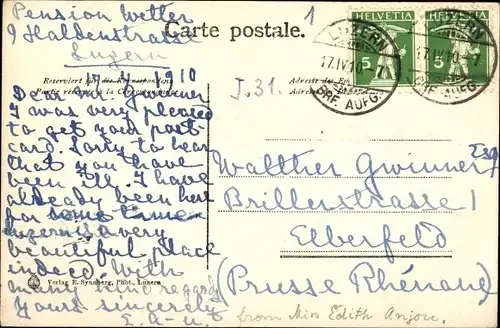 Pension Wetter
9 Haldenstrasse
Luzern
17.4.1910
Carte postale.
1
HELVETIA
HELVETIA
5
5
LUZERN
17.IV.10-7
BRF. AUFG.
17.IV.10-7
BRF. AUFG.
Reserviert für die Korrespondenz
Partie réservée à la Correspondance
J.31.
Dear Mr Gwinner
I was very pleased
to get your post-
card. Sorry to hear
that you have
been ill. I have
already been here
for some time.
Luzern is a very
beautiful place
indeed. With
many kind regards
Yours sincerely
E. A-n.
Walther Gwinner
Brillenstrasse 1
Elberfeld
(Prusse Rhénane)
Verlag E. Synnberg, Phot., Luzern
from Miss Edith Anjou.